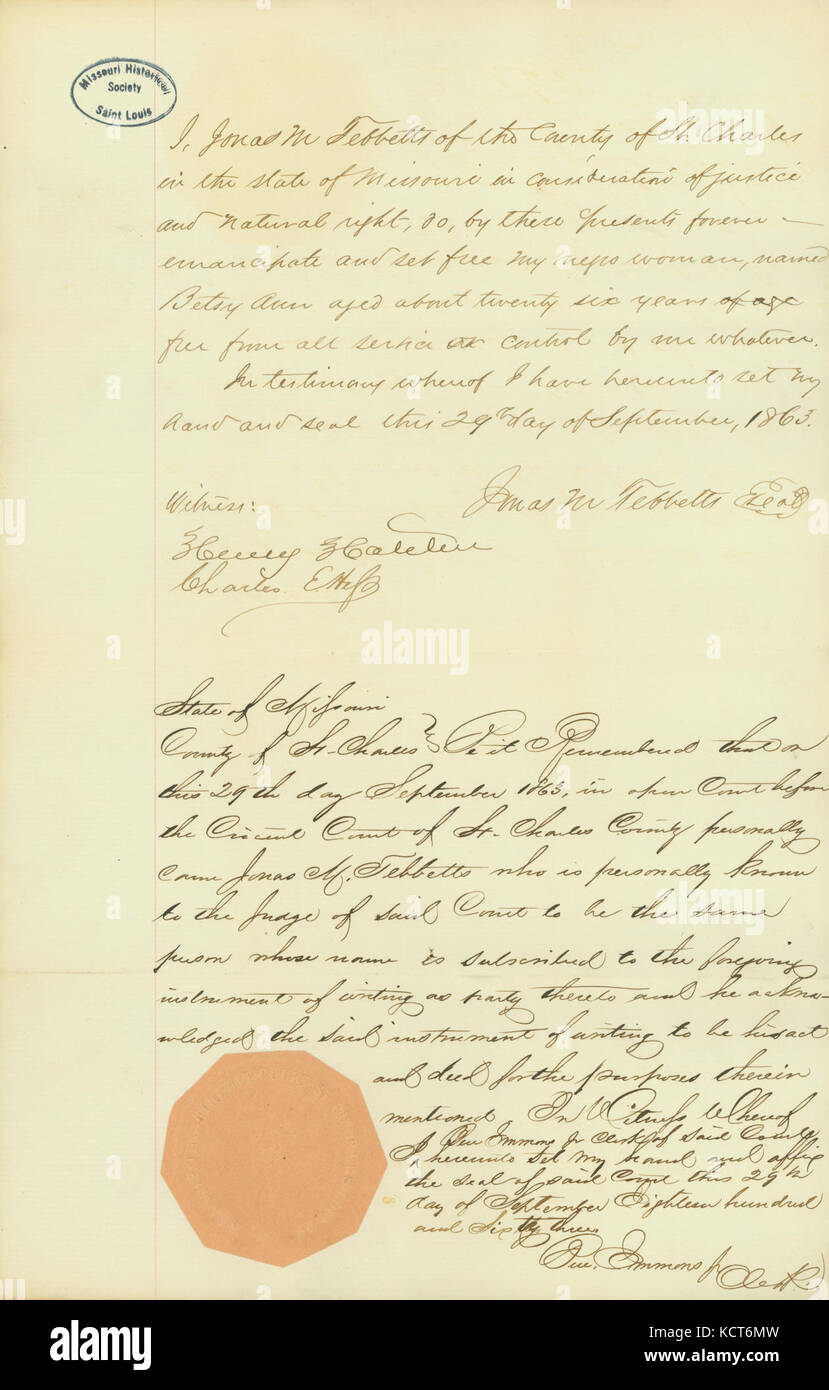 Missouri Historical
Society
Saint Louis
I, Jonas M Tebbetts of the County of St. Charles
in the state of Missouri in consideration of justice
and natural right, do, by these presents forever —
emancipate and set free my negro woman, named
Betsy Ann aged about twenty six years of age
free from all service or control by me whatever.
In testimony whereof I have hereunto set my
hand and seal this 29th day of September, 1863.
Jonas M Tebbetts Seal
Witness:
Henry
Charles E
State of Missouri
County of St. Charles } Be it Remembered that on
this 29th day September 1863, in open Court before
the Circuit Court of St. Charles County personally
came Jonas M. Tebbetts who is personally known
to the Judge of said Court to be the same
person whose name is subscribed to the foregoing
instrument of writing as party thereto and he acknow-
wledged the said instrument of writing to be his act
and deed for the purposes therein
mentioned. In Witness Whereof
I Emmons Jr Clerk of said Court
I hereunto set my hand and affix
the seal of said Court this 29th
day of September Eighteen hundred
and Sixty three
Emmons Jr Clerk
alamy
Image ID: KCT6MW
www.alamy.com